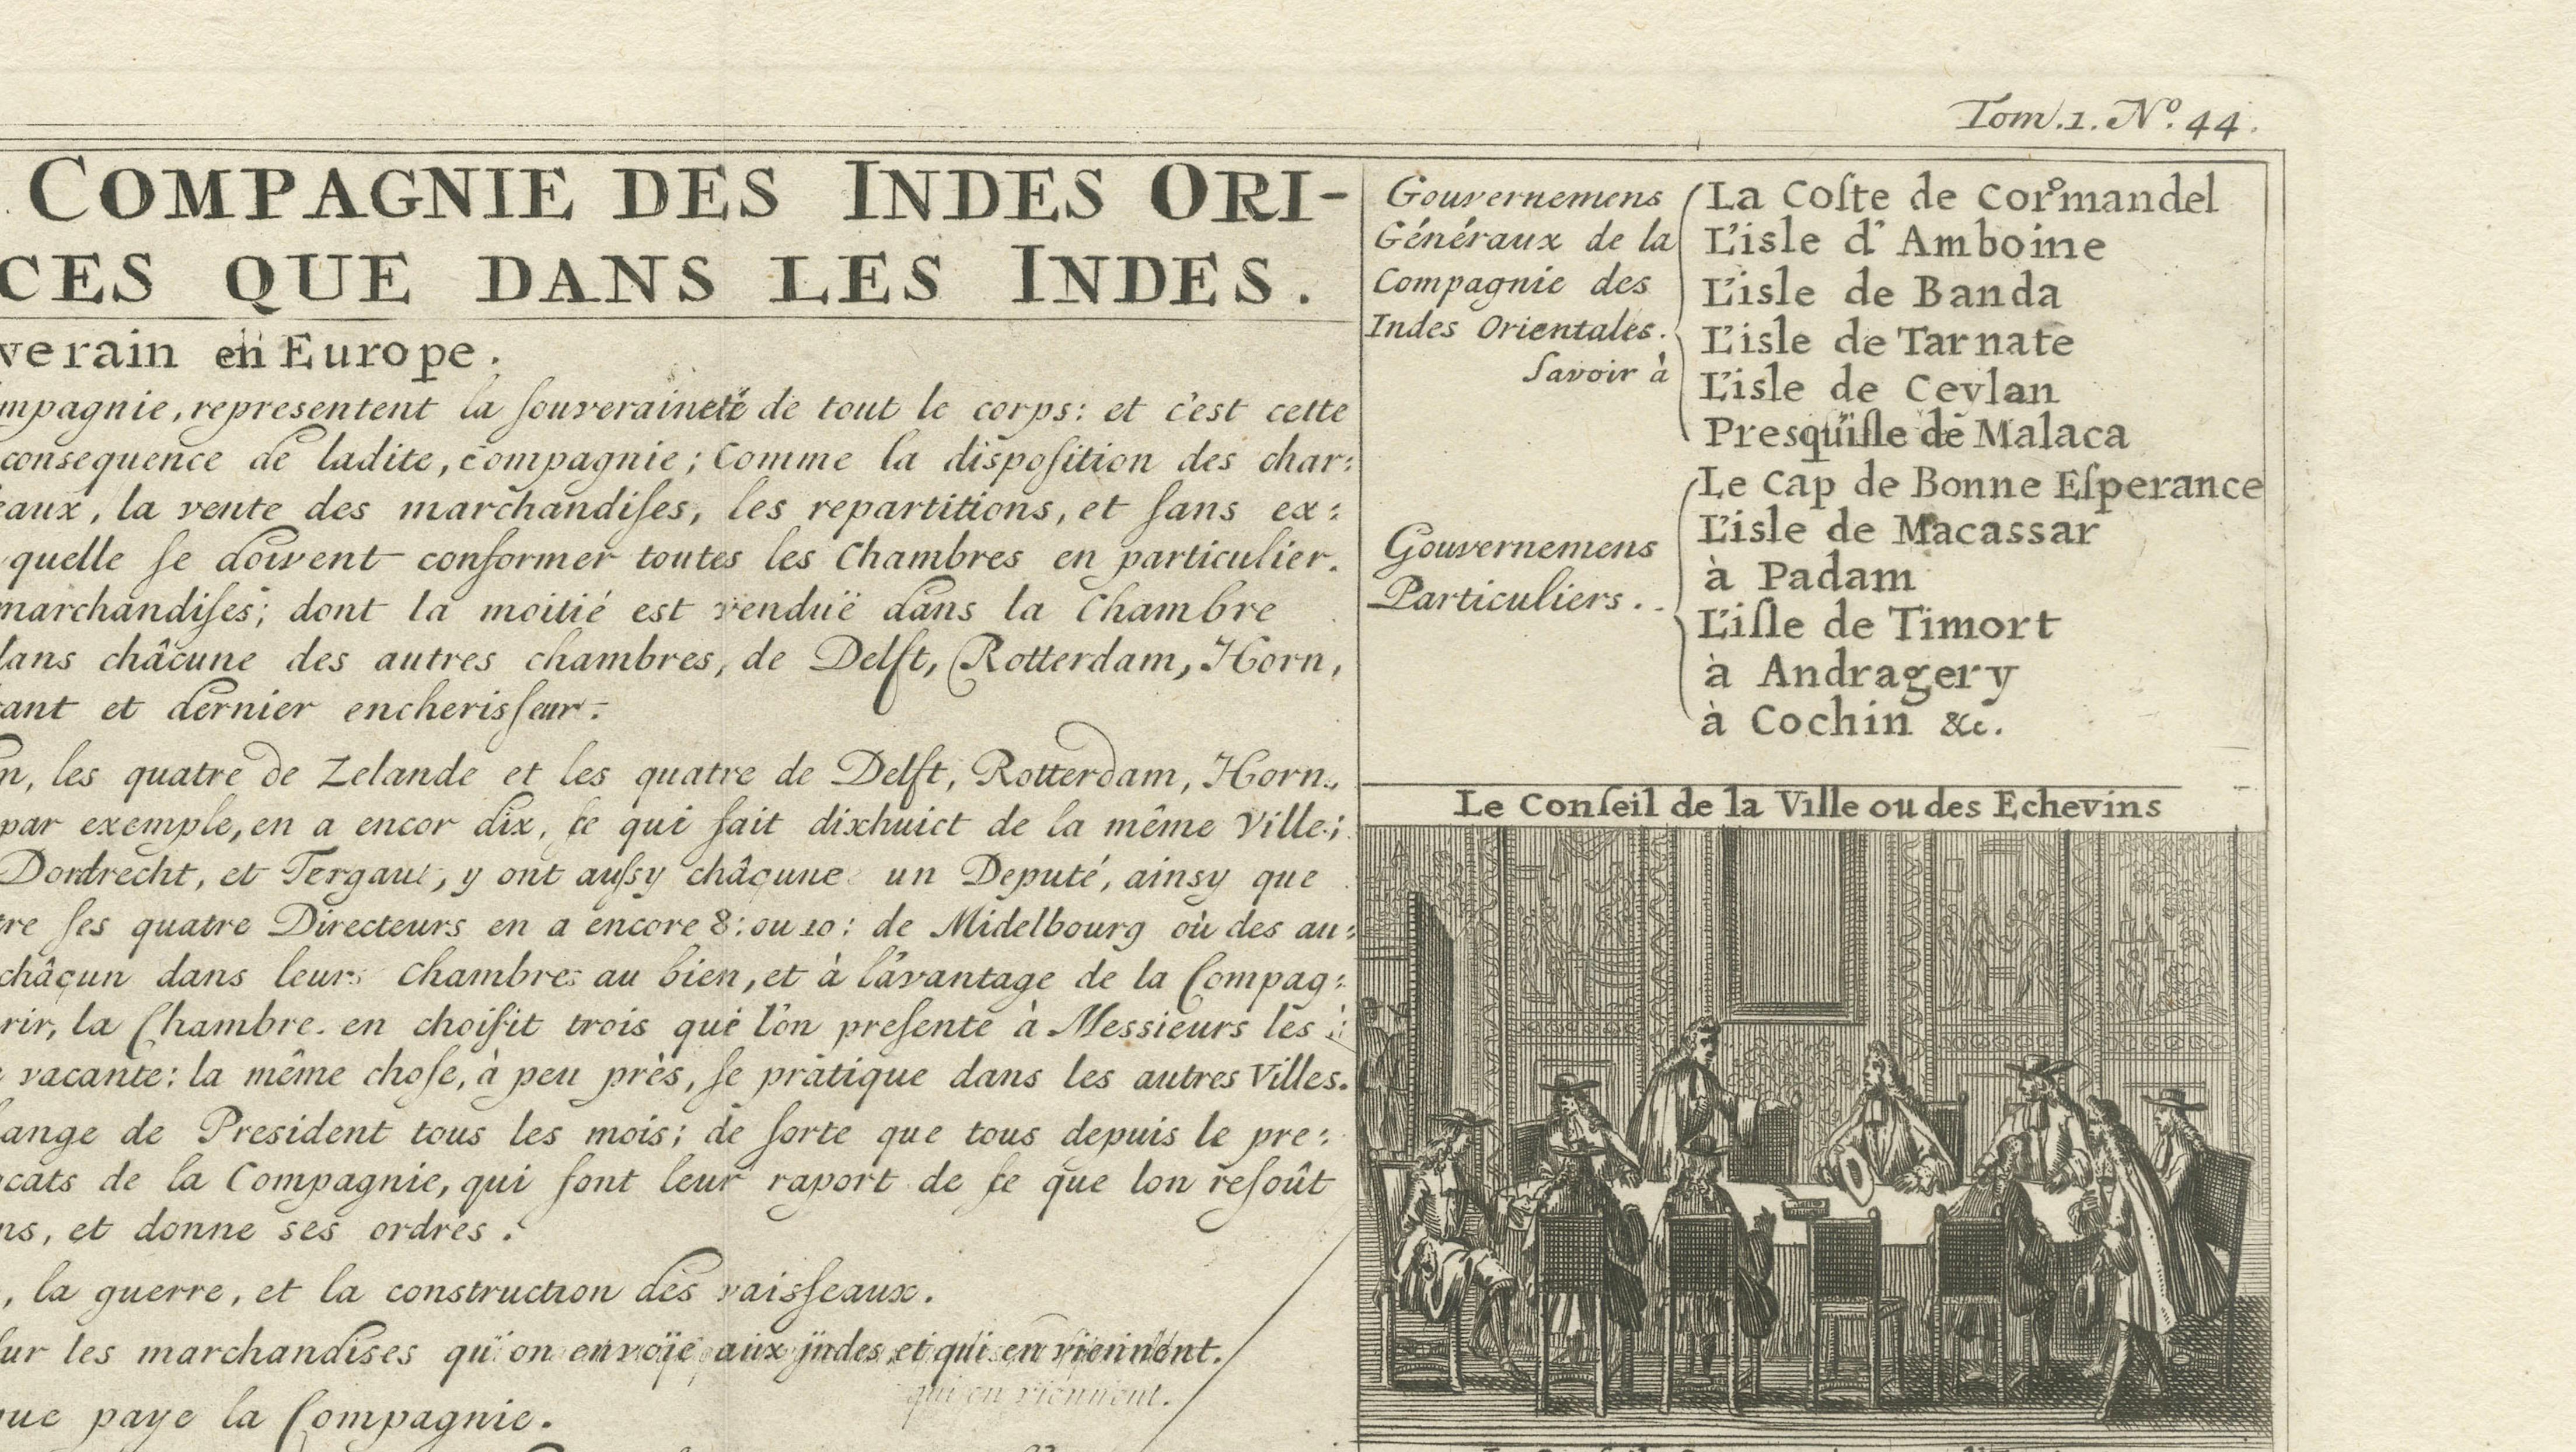 Tom.1. Nº. 44.
COMPAGNIE DES INDES ORI-
CES QUE DANS LES INDES.
verain en Europe.
mpagnie, representent la ſouveraineté de tout le corps: et c'est cette
consequence de ladite, compagnie; Comme la dispoſition des char:
eaux, la vente des marchandiſes, les repartitions, et ſans ex:
quelle ſe doivent conformer toutes les Chambres en particulier.
marchandiſes; dont la moitié est venduë dans la Chambre
dans châcune des autres chambres, de Delft, Rotterdam, Horn,
ant et dernier encherisſeur.
n, les quatre de Zelande et les quatre de Delft, Rotterdam, Horn,
par exemple, en a encor dix, ce qui fait dixhuict de la même Ville;
Dordrecht, et Tergau, y ont auſsy châcune un Deputé, ainsy que
tre ſes quatre Directeurs en a encore 8: ou 10: de Midelbourg où des au:
châcun dans leurs Chambres au bien, et à l'avantage de la Compag:
rir, la Chambre en choiſit trois que l'on preſente à Messieurs les
vacante: la même choſe, à peu près, ſe pratique dans les autres Villes.
ange de President tous les mois; de ſorte que tous depuis le pre:
cats de la Compagnie, qui font leur raport de ce que lon reſoût
ns, et donne ses ordres.
, la guerre, et la construction des vaisſeaux.
ſur les marchandises qu'on envoïe aux jndes et qui en viennent.
qui en viennent.
que paye la Compagnie.
Gouvernemens
Généraux de la
Compagnie des
Indes Orientales.
Savoir à
La Coſte de Cormandel
L'isle d'Amboine
L'isle de Banda
L'isle de Tarnate
L'isle de Ceylan
Presqu'iſle de Malaca
Gouvernemens
Particuliers..
Le Cap de Bonne Eſperance
L'isle de Macassar
à Padam
L'iſle de Timort
à Andragery
à Cochin &c.
Le Conſeil de la Ville ou des Echevins